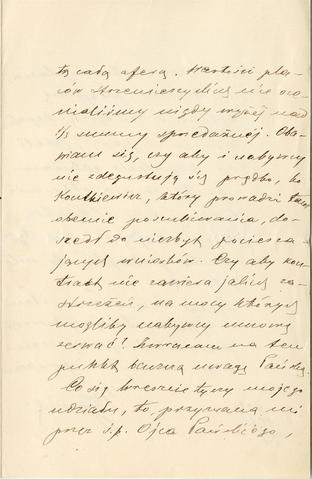 tę całą aferą. Wartości pla-
ców Strzemieszyckich nie oce-
nialiśmy nigdy wyżej nad
1/3 sumy sprzedażnej. Oba-
wiam się, czy aby i nabywcy
nie zdegustują się prędko, bo
Kontkiewicz, który prowadzi tam
obecnie poszukiwania, do-
szedł do niezbyt pociesza-
jących wniosków. Czy aby kon-
trakt nie zawiera jakich za-
strzeżeń, na mocy których
mogliby nabywcy umowę
zerwać? Zwracam na ten
punkt baczną uwagę Pańską.
Co się wreszcie tyczy mojego
udziału, to, przyznana mi
przez ś.p. Ojca Pańskiego,